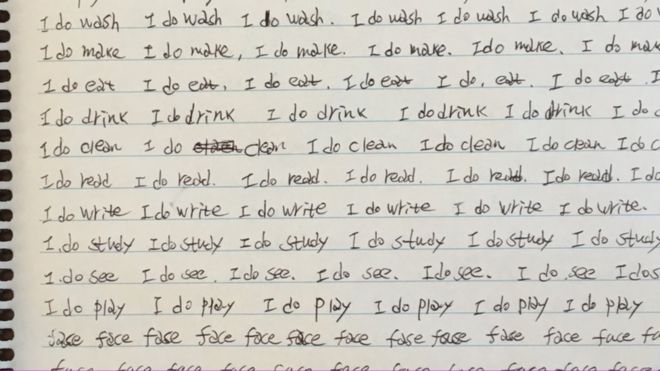 I do wash I do wash I do wash. I do wash I do wash I do wash I do
I do make I do make, I do make. I do make. I do make. I do make
I do eat I do eat, I do eat. I do eat I do, eat. I do eat. I
I do drink I do drink I do drink I do drink I do drink I do
I do clean I do clean I do clean I do clean I do clean I do
I do read I do read. I do read. I do read. I do read. I do read. I do
I do write I do write I do write I do write I do write I do write.
1.do study I do study I do study I do study I do study I do study
1.do see I do see. I do see. I do see. I do see. I do see I do
I do play I do play I do play I do play I do play I do play
face face face face face face face face face face face